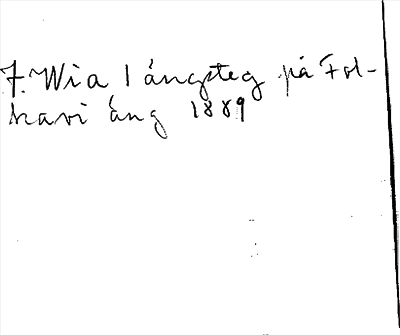 7. Wia l ångsteg på Fol-
kavi äng 1889